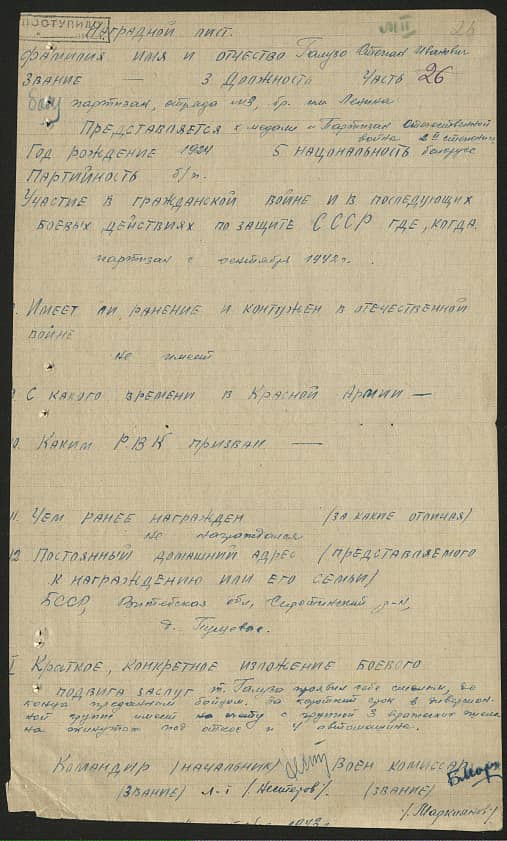 ПОСТУПИЛО
Наградной лист. 26
Фамилия имя и отчество Галузо Степан Иванович
Звание — 3 Должность Часть 26
партизан, отряда №3, бр. им Ленина
Представляется к медали „Партизан Отечественной
война 2й степени
Год рождение 1924 5 национальность белорус
Партийность б/п.
Участие в гражданской войне и в последующих
боевых действиях по защите СССР где, когда.
партизан с сентября 1942 г.
Имеет ли ранение и контужен в отечественной
войне
не имеет
9 С какого времени в Красной Армии —
0. Каким Р.В.К призван —
11. Чем ранее награжден (за какие отличая)
не награждался
12 Постоянный домашний адрес (представляемого
к награждению или его семьи)
БССР, Витебская обл, Сиротинский р-н,
д.
I Краткое, конкретное изложение боевого
подвига заслуг т. Галузо проявил себя смелым, до
конца преданным бойцом. За короткий срок в диверсион-
ной группе имеет на счету с группой 3 вражеских
под откос и 4 автомашины.
Командир (начальник) Воен комисса
(звание) л-т /Нестеров/. (звание)
/. Маркианов/